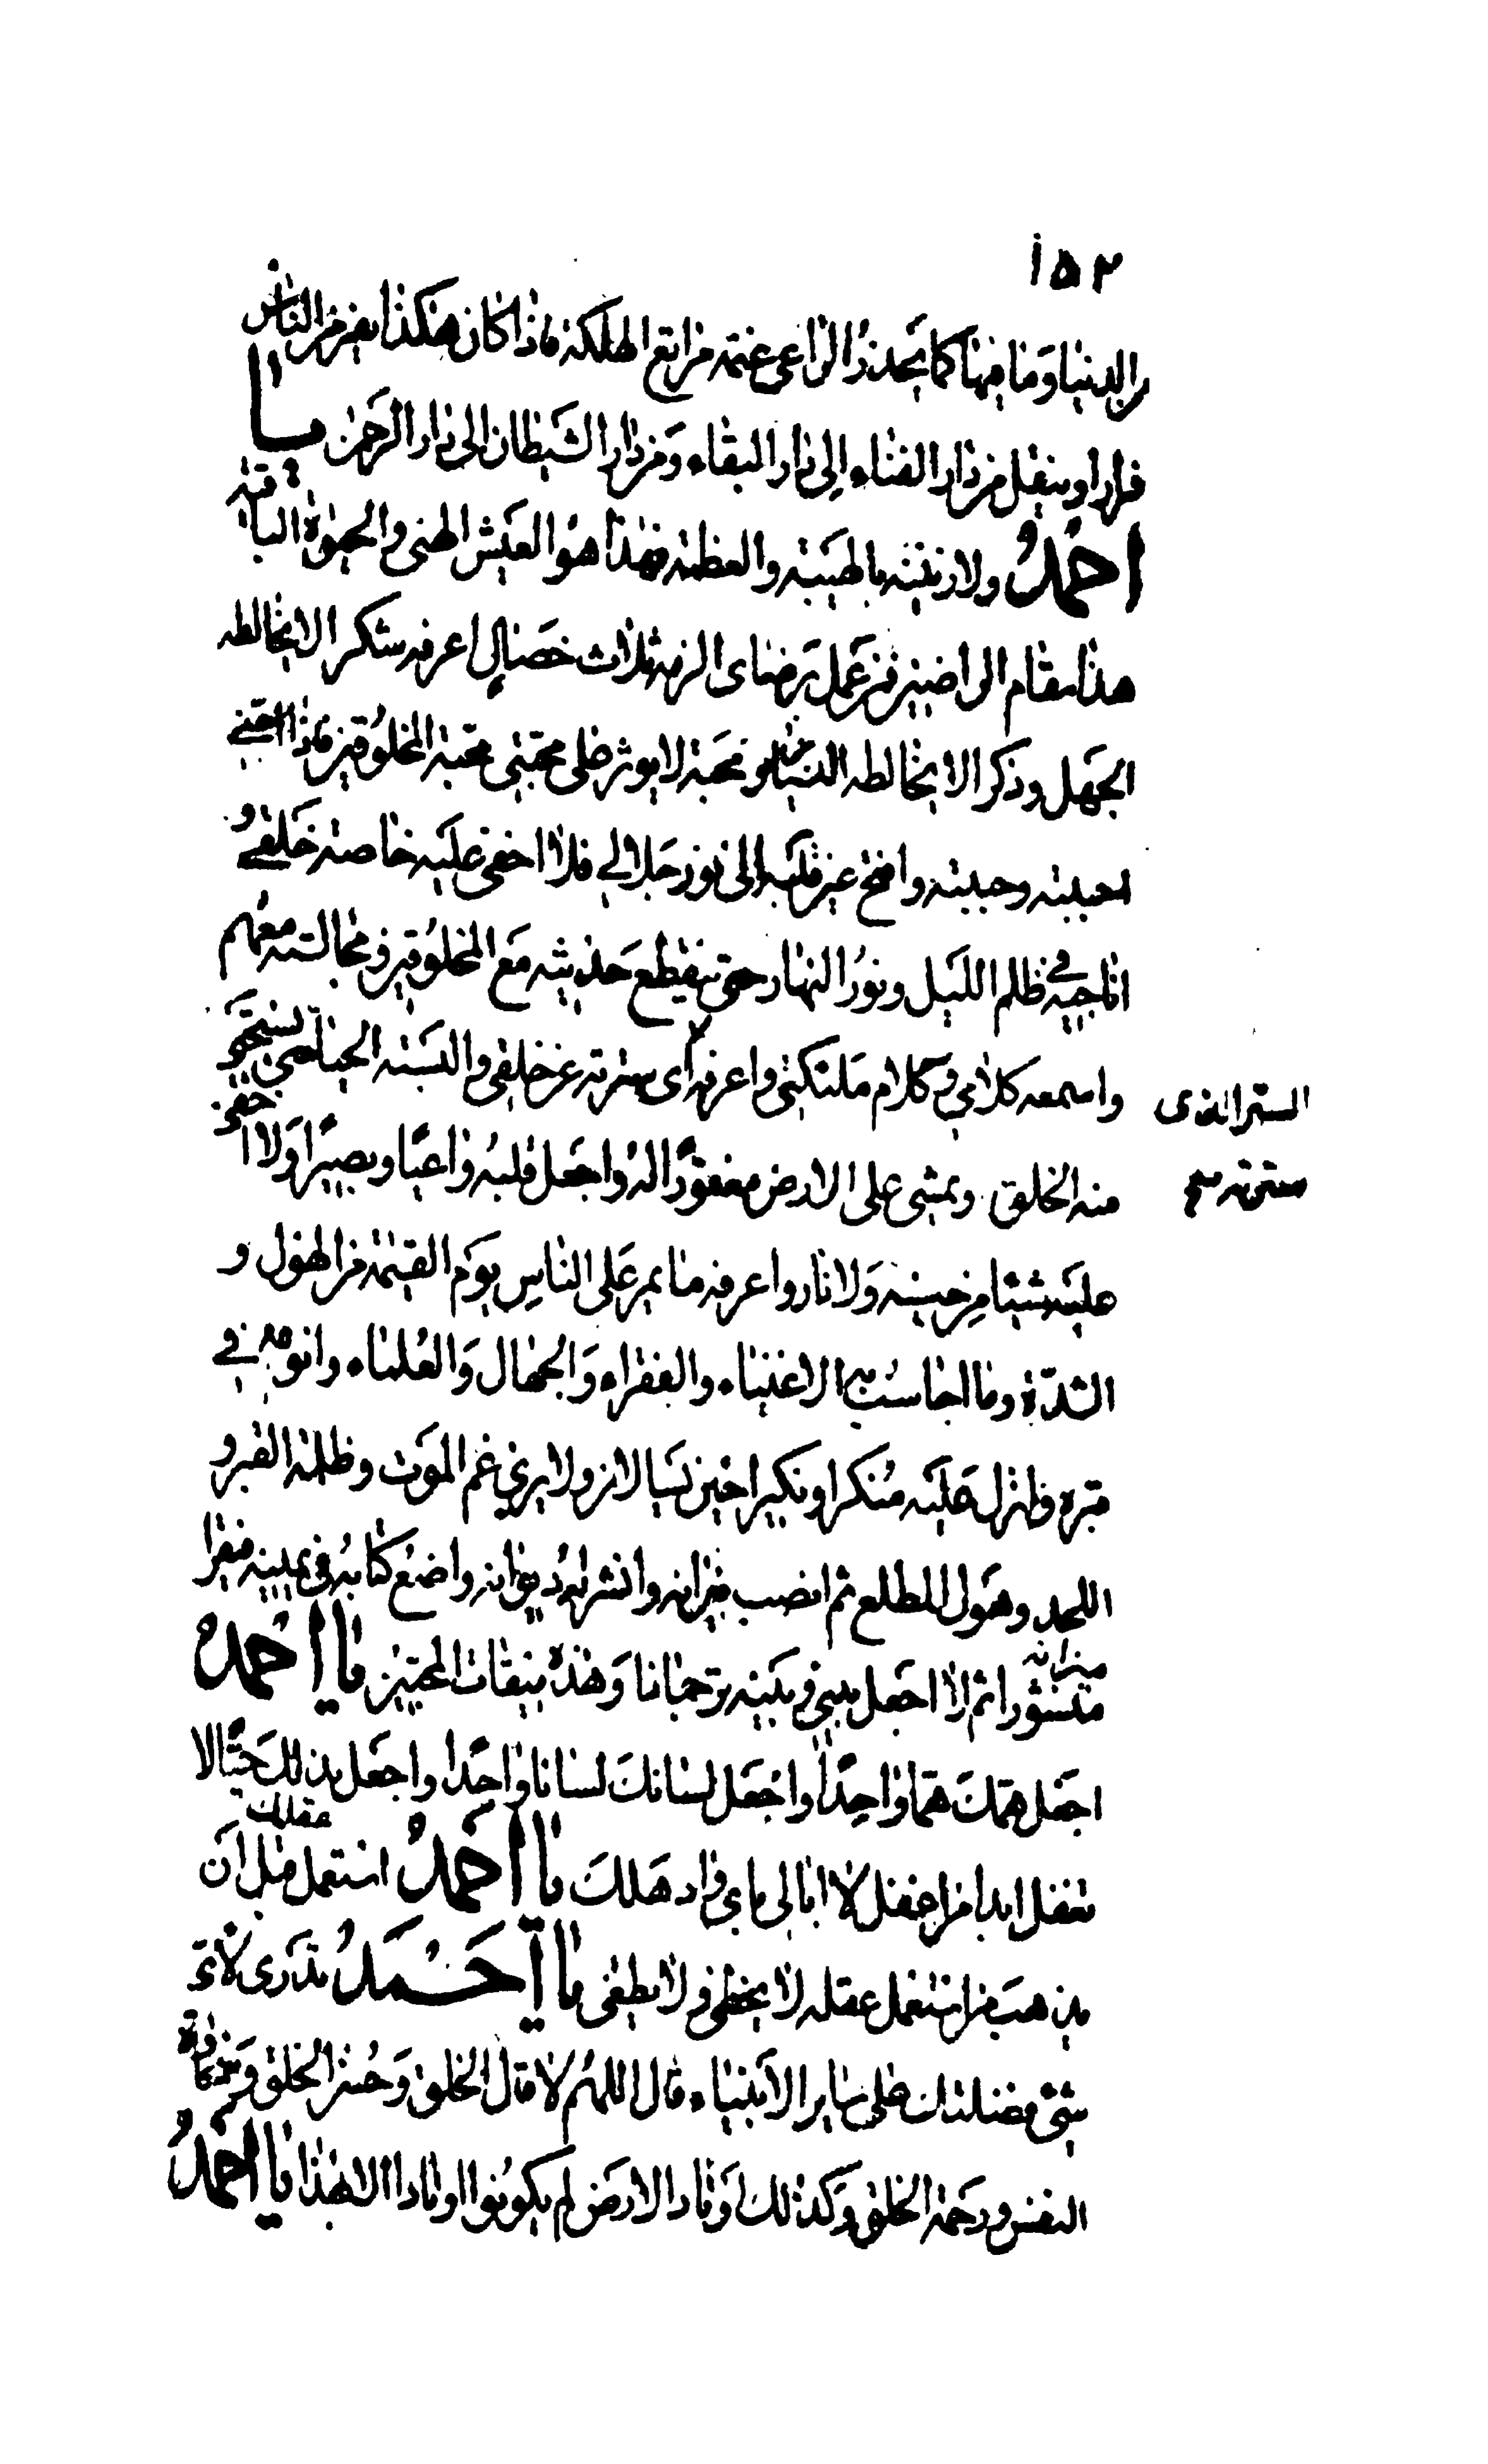 ١٥٢
من الدنيا وما فيها كما يحذر الراعى غنمه مراتع الهلكة فاذا كان هكذا يفر من الناس
فرارا وينقل من دار الفناء الى دار البقاء ومن دار الشيطان الى دار الرحمن يا
احمد ولازيننه بالهيبة والعظمة فهذا هو العيش الهنى والحيوة الباقية
هذا مقام الراضين فمن عمل برضاى الزمه ثلاث خصال اعرفه شكرا لا يخالطه
الجهل وذكرا لا يخالطه النسيان ومحبة لا يوثر على محبتى محبة المخلوقين فاذا احبنى
احببته وحببته وافتح عين قلبه الى نور جلالى فلا اخفى عليه خاصة خلقى و
اناجيه فى ظلم الليل ونور النهار حتى ينقطع حديثه مع المخلوقين ومجالسته معهم
واسمعه كلامى وكلام ملئكتى واعرفه اى سترته عن خلقى والبسه الحياء حتى يستحيى
السر الذى
سترته
منه الخلق ويمشى على الارض مغفورا له واجعل قلبه واعيا وبصيرا ولا اخفى
عليه شيئا من جنة ولا نار واعرفه ما يمر على الناس يوم القيمة من الهول و
الشدة وما احاسب به الاغنياء والفقراء والجهال والعلماء وانومه فى
قبره وانزل عليه منكرا ونكيرا حين يسالانه ولا يرى غم الموت وظلمة القبر و
اللحد وهول المطلع ثم انصب ميزانه وانشر له ديوانه واضع كتابه فى يمينه فيقرا
منشورا ثم لا اجعل بينى وبينه ترجمانا وهذه صفات المحبين يا احمد
اجعل همك هما واحدا واجعل لسانك لسانا واحدا واجعل بدنك حيا لا
تغفل ابدا من غفل لا ابالى باى واد هلك يا احمد استعمل عقلك قبل ان
يذهب من استعمل عقله لا يخطى ولا يطغى يا احمد تدرى لاى
شئ فضلتك على ساير الانبياء قال اللهم لا قال الخلق وحسن الخلق وسخاوة
النفس ورحمة الخلق وكذلك اوتاد الارض لم يكونوا اوتادا الا بهذا يا احمد